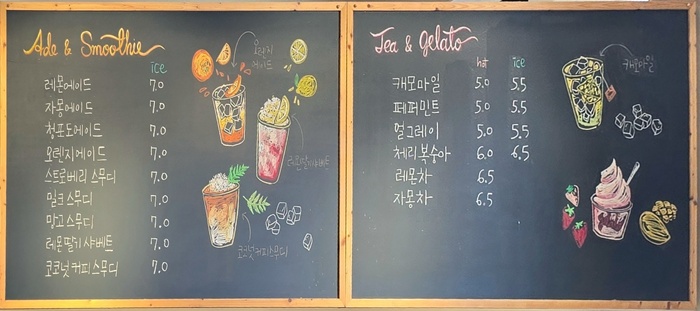 Ade & Smoothie
ice
레몬에이드 7.0
자몽에이드 7.0
청포도에이드 7.0
오렌지에이드 7.0
스트로베리 스무디 7.0
밀크스무디 7.0
망고스무디 7.0
레몬딸기샤베트 7.0
코코넛커피스무디 7.0
오렌지
에이드
레몬딸기샤베트
코코넛커피스무디
Tea & Gelato
hot ice
캐모마일 5.0 5.5
페퍼민트 5.0 5.5
얼그레이 5.0 5.5
체리복숭아 6.0 6.5
레몬차 6.5
자몽차 6.5
캐모마일